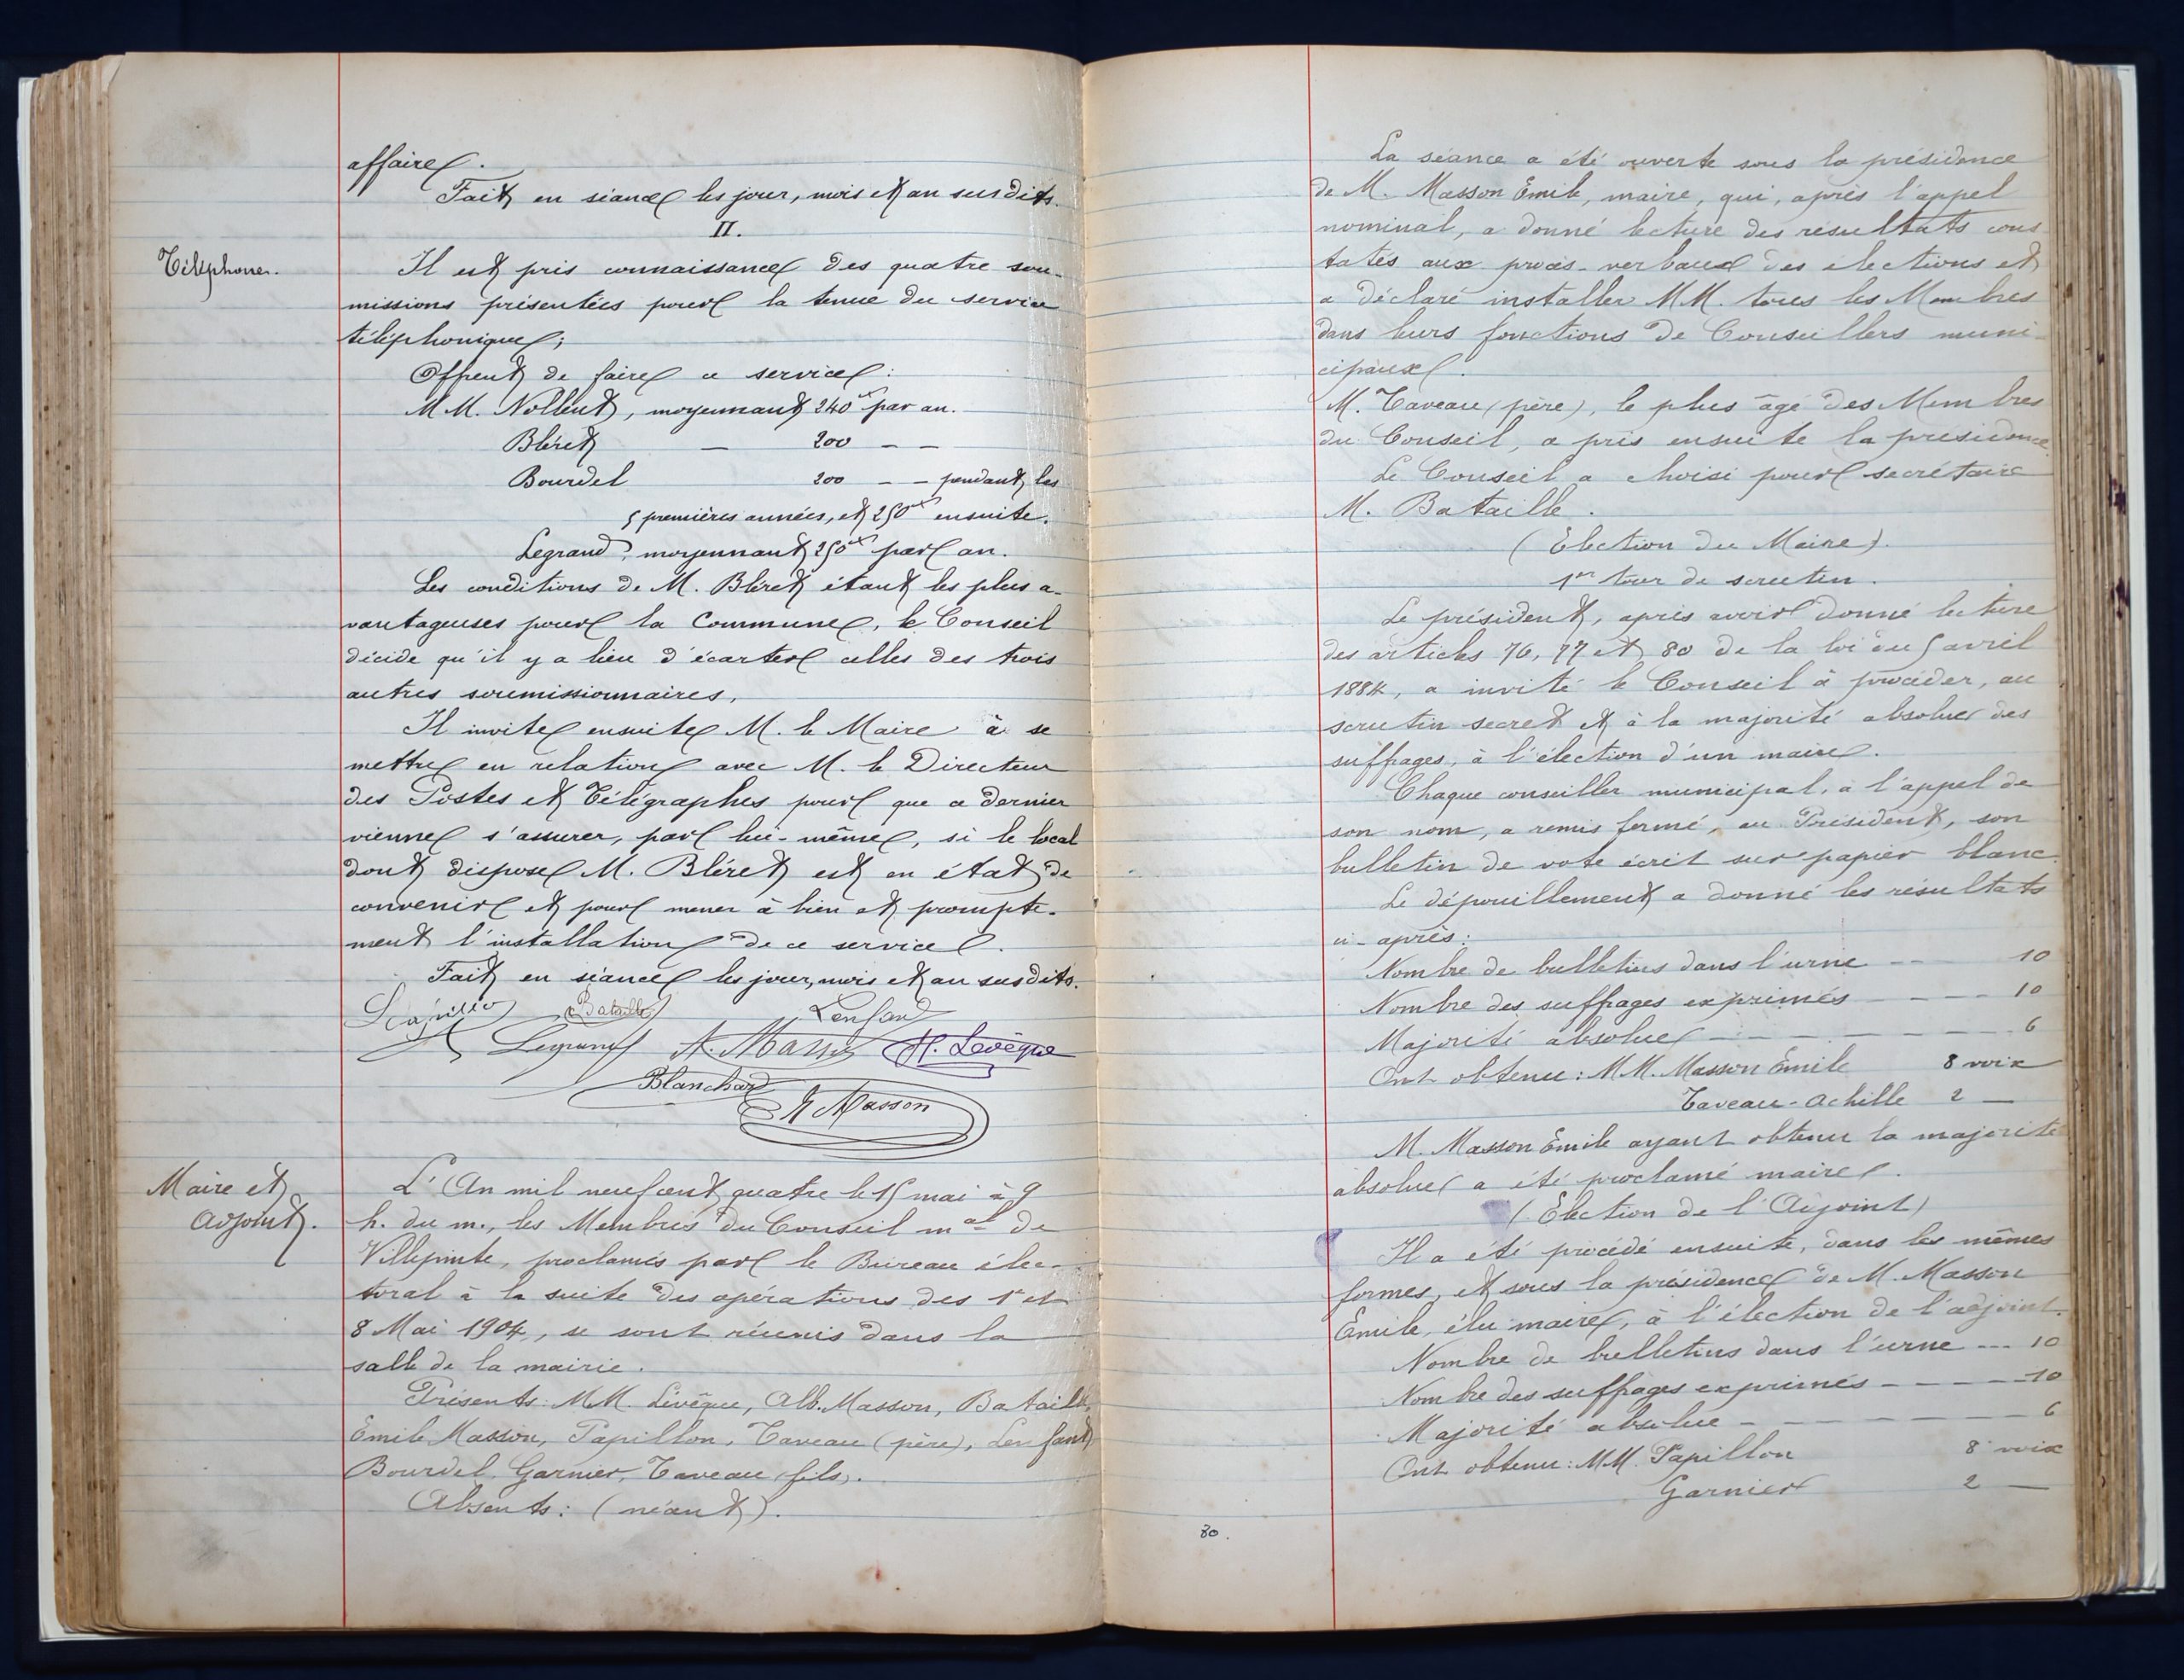 affaire.
Fait en séance les jour, mois et an susdits.
II.
Téléphone.
Il est pris connaissance des quatre sou-
missions présentées pour la tenue du service
téléphonique;
Offrent de faire ce service :
MM. Nollent, moyennant 240 par an.
Bléret — 200 — —
Bourdel 200 — — pendant les
5 premières années, et 250 ensuite.
Legrand, moyennant 250 par an.
Les conditions de M. Bléret étant les plus a-
vantageuses pour la Commune, le Conseil
décide qu'il y a lieu d'écarter celles des trois
autres soumissionnaires.
Il invite ensuite M. le Maire à se
mettre en relation avec M. le Directeur
des Postes et Télégraphes pour que ce dernier
vienne s'assurer, par lui-même, si le local
dont dispose M. Bléret est en état de
convenir et pour mener à bien et prompte-
ment l'installation de ce service.
Fait en séance les jour, mois et an susdits.
Bataille Lenfant
Legrand A. Masson H. Levêque
Blanchard
E Masson
Maire et
Adjoint.
L'An mil neuf cent quatre le 15 mai à 9
h. du m., les Membres du Conseil mal de
Villepinte, proclamés par le Bureau élec-
toral à la suite des opérations des 1er et
8 Mai 1904, se sont réunis dans la
salle de la mairie.
Présents : MM. Lévêque, Alb. Masson, Bataille,
Emile Masson, Papillon, Taveau (père), Lenfant
Bourdel, Garnier, Taveau (fils).
Absents : (néant).
La séance a été ouverte sous la présidence
de M. Masson Emile, maire, qui, après l'appel
nominal, a donné lecture des résultats cons
tatés aux procès-verbaux des élections et
a déclaré installer MM. tous les Membres
dans leurs fonctions de Conseillers muni-
cipaux.
M. Taveau (père), le plus âgé des Membres
du Conseil, a pris ensuite la présidence.
Le Conseil a choisi pour secrétaire
M. Bataille.
(Election du Maire).
1er tour de scrutin.
Le président, après avoir donné lecture
des articles 76, 77 et 80 de la loi du 5 avril
1884, a invité le Conseil à procéder, au
scrutin secret et à la majorité absolue des
suffrages, à l'élection d'un maire.
Chaque conseiller municipal, à l'appel de
son nom, a remis fermé, au Président, son
bulletin de vote écrit sur papier blanc.
Le dépouillement a donné les résultats
ci-après :
Nombre de bulletins dans l'urne — — 10
Nombre des suffrages exprimés — — — 10
Majorité absolue — — — — — — 6
Ont obtenu : MM. Masson Emile 8 voix
Taveau-Achille 2 —
M. Masson Emile ayant obtenu la majorité
absolue a été proclamé maire.
(Election de l'Adjoint)
Il a été procédé ensuite, dans les mêmes
formes, et sous la présidence de M. Masson
Emile, élu maire, à l'élection de l'adjoint.
Nombre de bulletins dans l'urne --- 10
Nombre des suffrages exprimés — — — — 10
Majorité absolue — — — — — — 6
Ont obtenu : MM. Papillon 8 voix
Garnier 2 —
80.